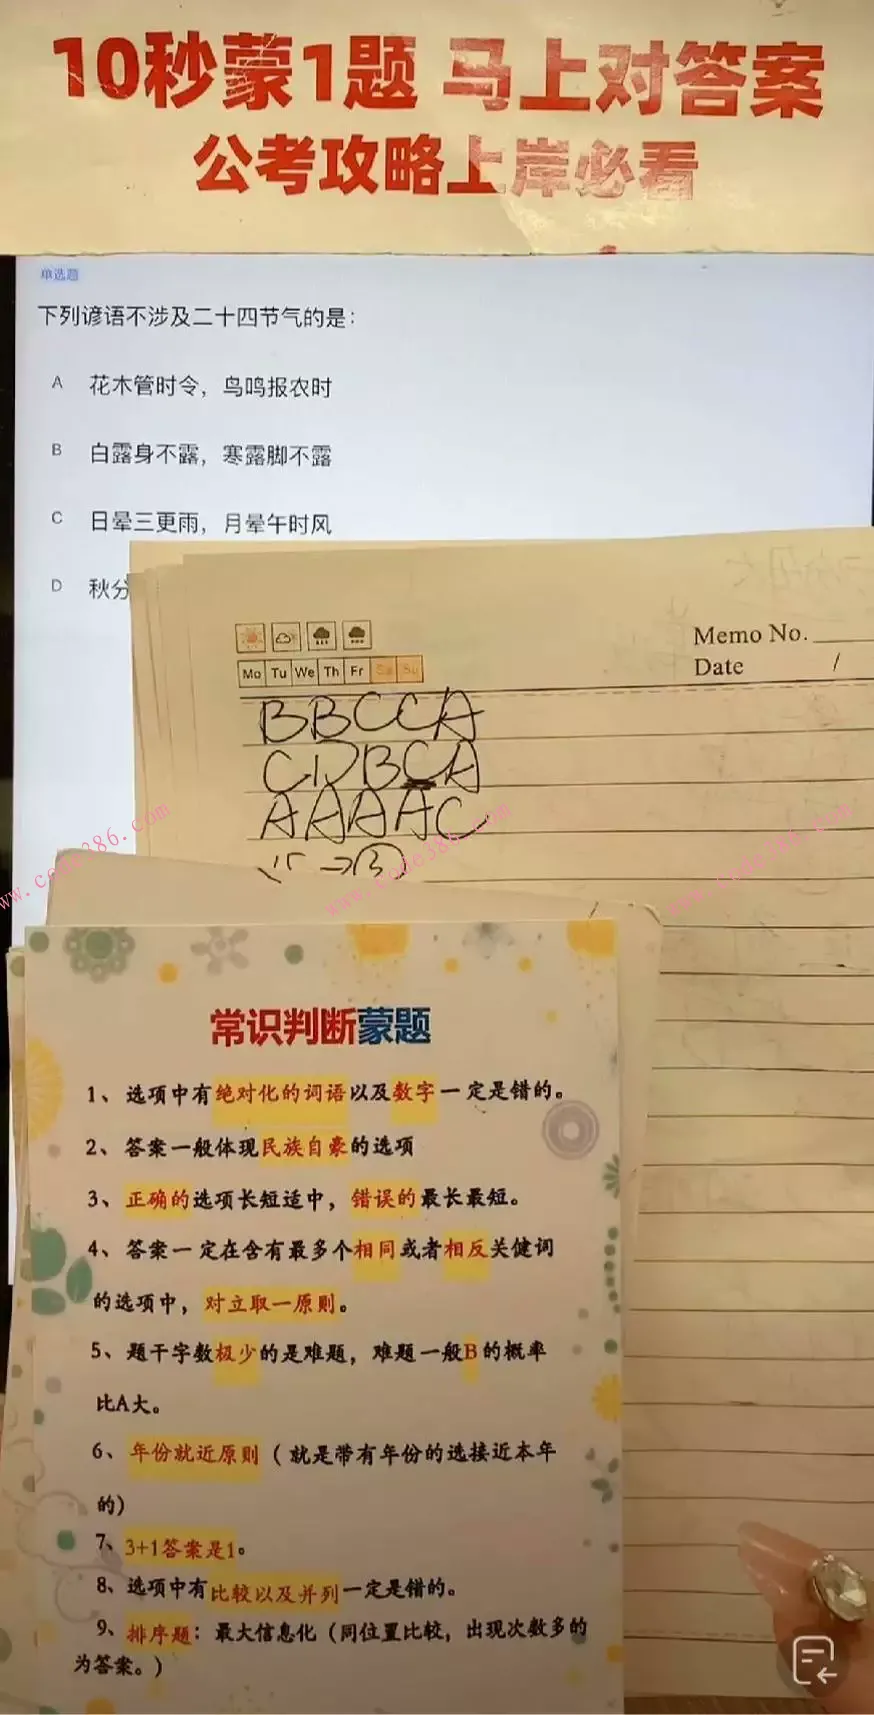 10秒蒙1题 马上对答案
公考攻略上岸必看
单选题
下列谚语不涉及二十四节气的是：
A 花木管时令，鸟鸣报农时
B 白露身不露，寒露脚不露
C 日晕三更雨，月晕午时风
D 秋分
Memo No.
Mo Tu We Th Fr Sa Su
Date /
BBCCA
CDBCA
AAAAC
15 → B
www.code386.com
www.code386.com
www.code386.com
常识判断蒙题
1、选项中有绝对化的词语以及数字一定是错的。
2、答案一般体现民族自豪的选项
3、正确的选项长短适中，错误的最长最短。
4、答案一定在含有最多个相同或者相反关健词
的选项中，对立取一原则。
5、题干字数极少的是难题，难题一般B的概率
比A大。
6、年份就近原则（就是带有年份的选接近本年
的）
7、3+1答案是1。
8、选项中有比较以及并列一定是错的。
9、排序题：最大信息化（同位置比较，出现次数多的
为答案。）